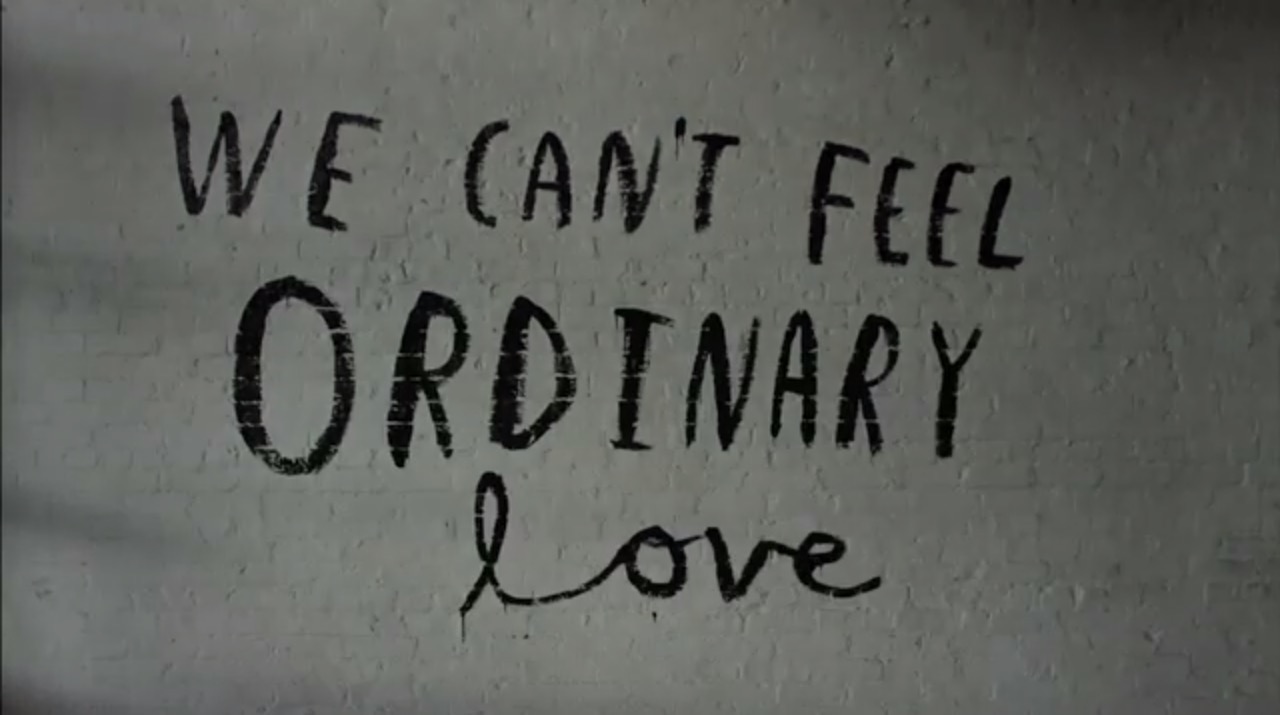 WE CAN'T FEEL
ORDINARY
love